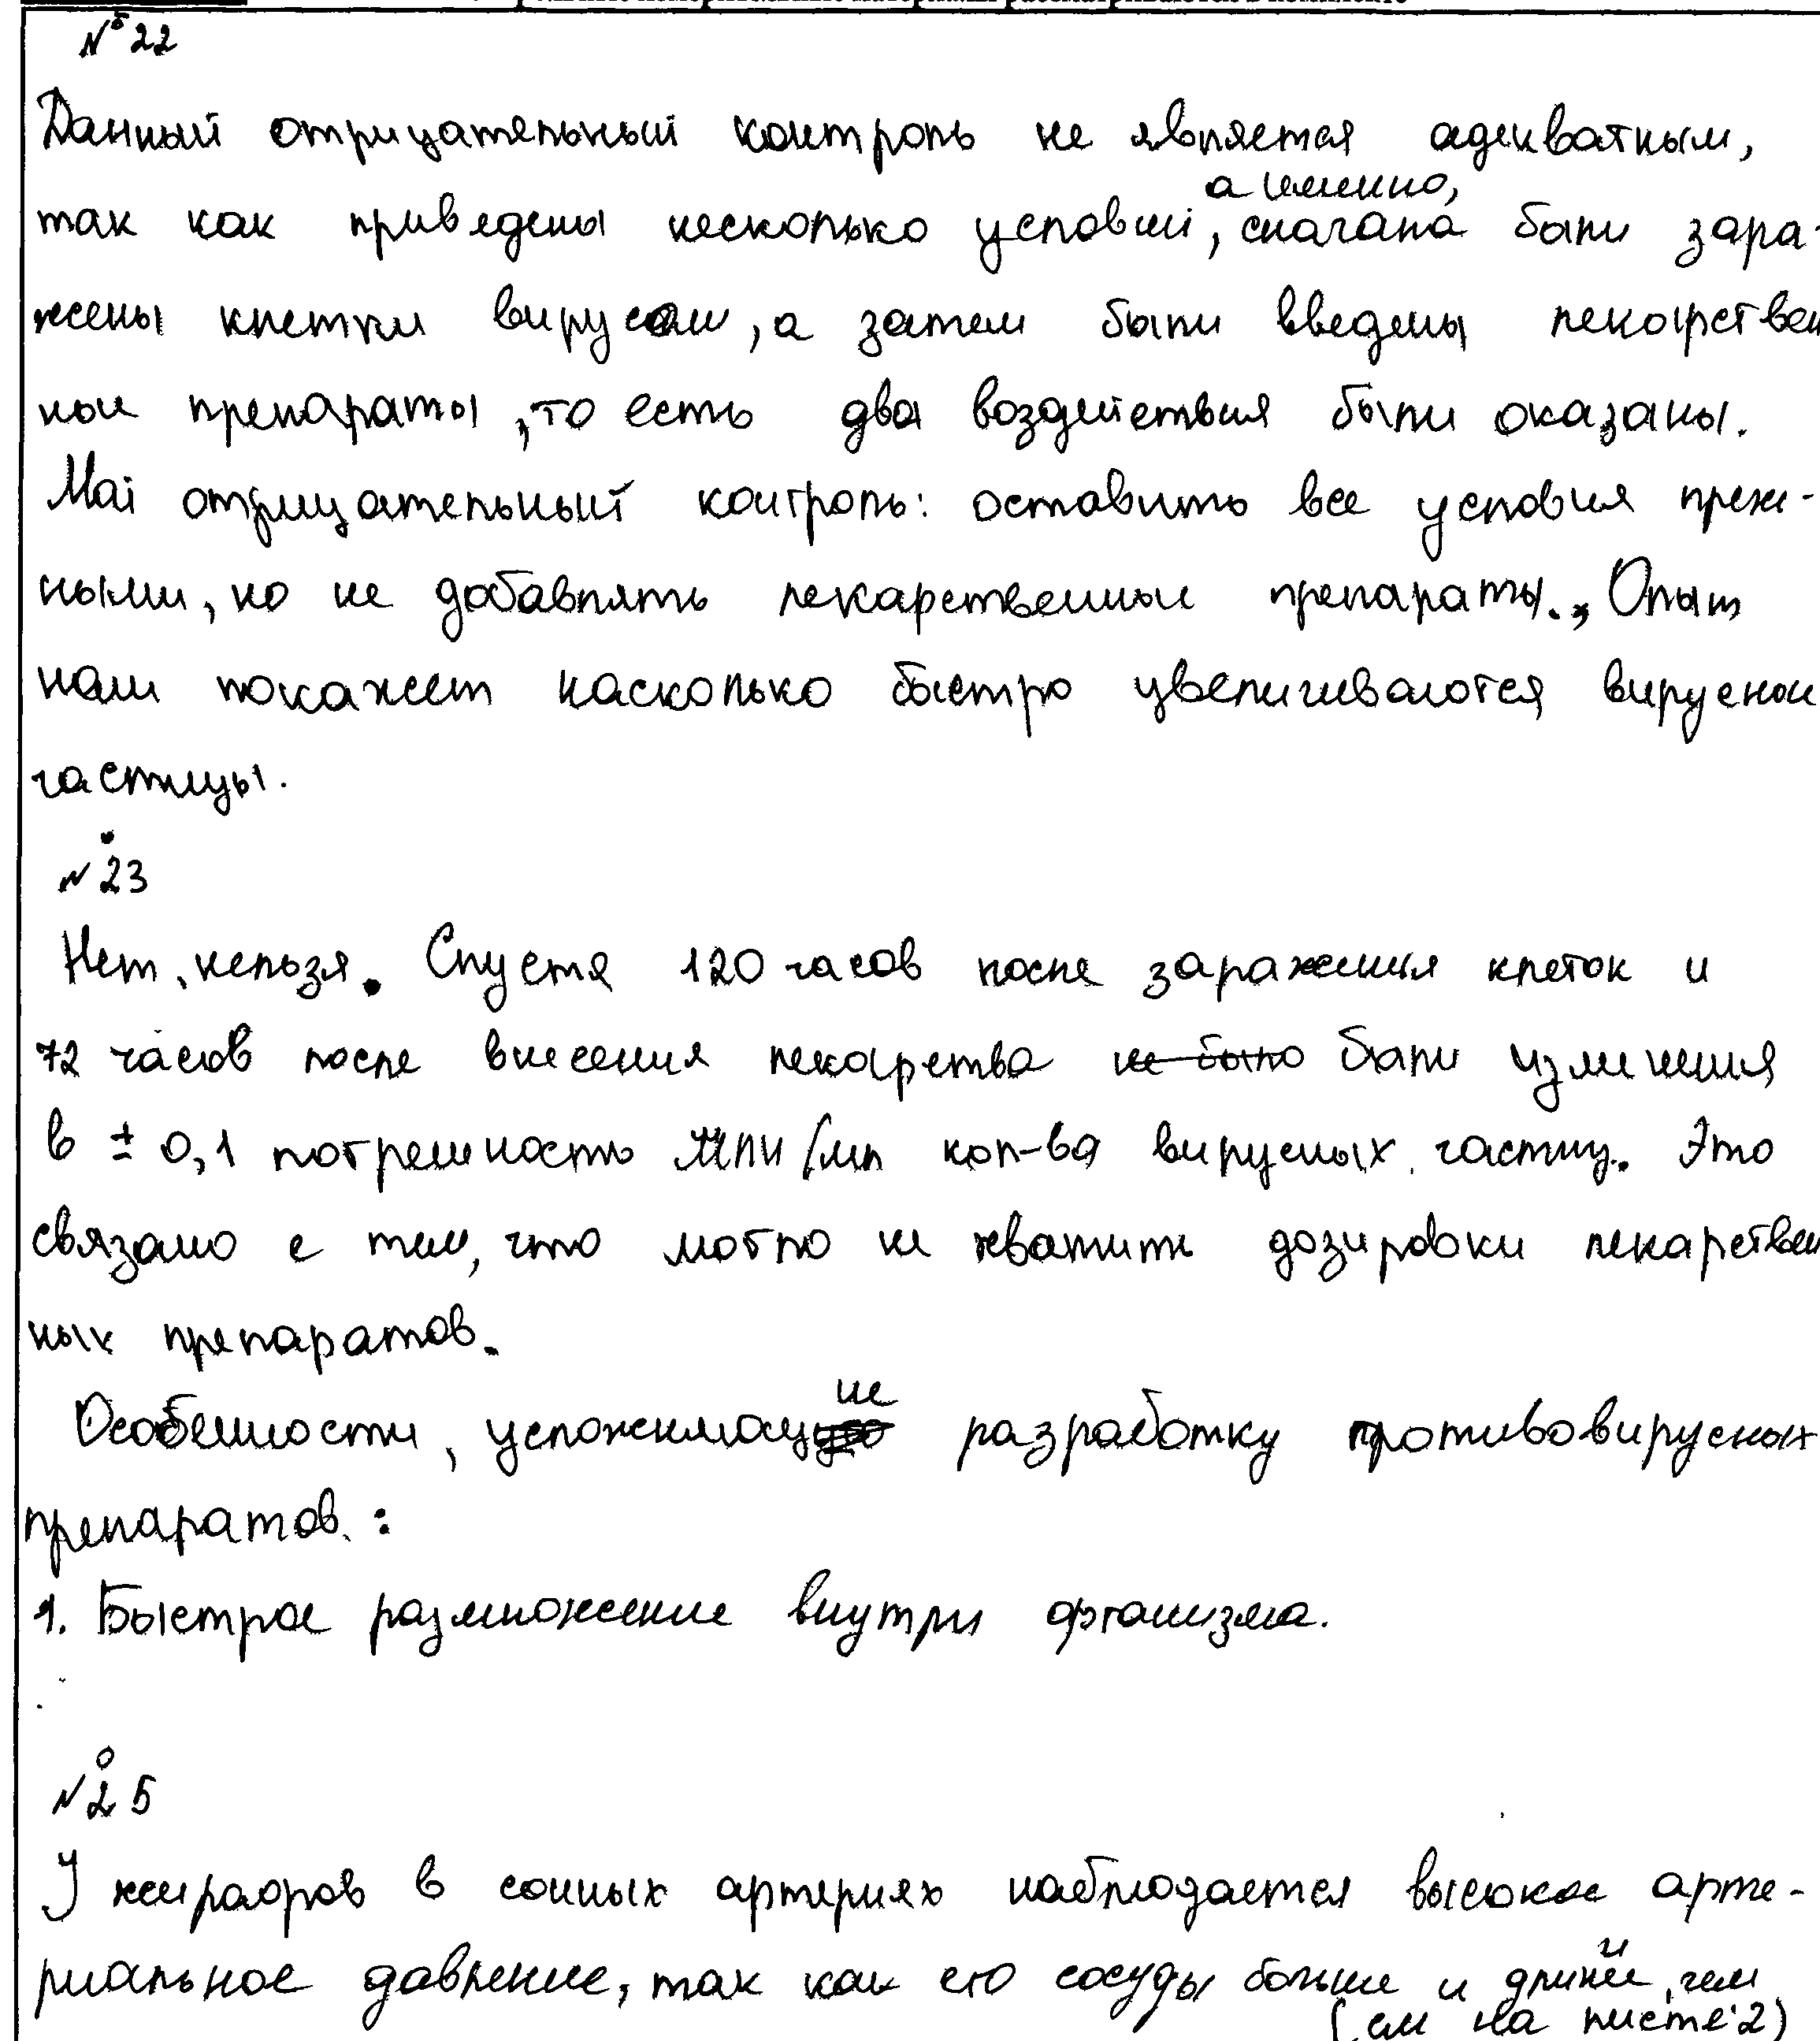 № 22
Данный отрицательный контроль не является адекватным,
а именно,
так как приведены несколько условий, сначала были зара-
жены клетки вирусом, а затем были введены лекарствен
ные препараты, то есть два воздействия были оказаны.
Мой отрицательный контроль: оставить все условия преж-
ными, но не добавлять лекарственные препараты. Опыт
нам покажет насколько быстро увеличиваются вирусные
частицы.
№ 23
Нет, нельзя. Спустя 120 часов после заражения клеток и
72 часов после внесения лекарства не было были изменения
в ± 0,1 погрешность МПИ/мл кол-ва вирусных частиц. Это
связано с тем, что могло не хватить дозировки лекарствен
ных препаратов.
Особенности, усложняющие разработку противовирусных
препаратов:
1. Быстрое размножение внутри организма.
№ 25
У жирафов в сонных артериях наблюдается высокое арте-
риальное давление, так как его сосуды больше и длиней, чем
(см на листе 2)